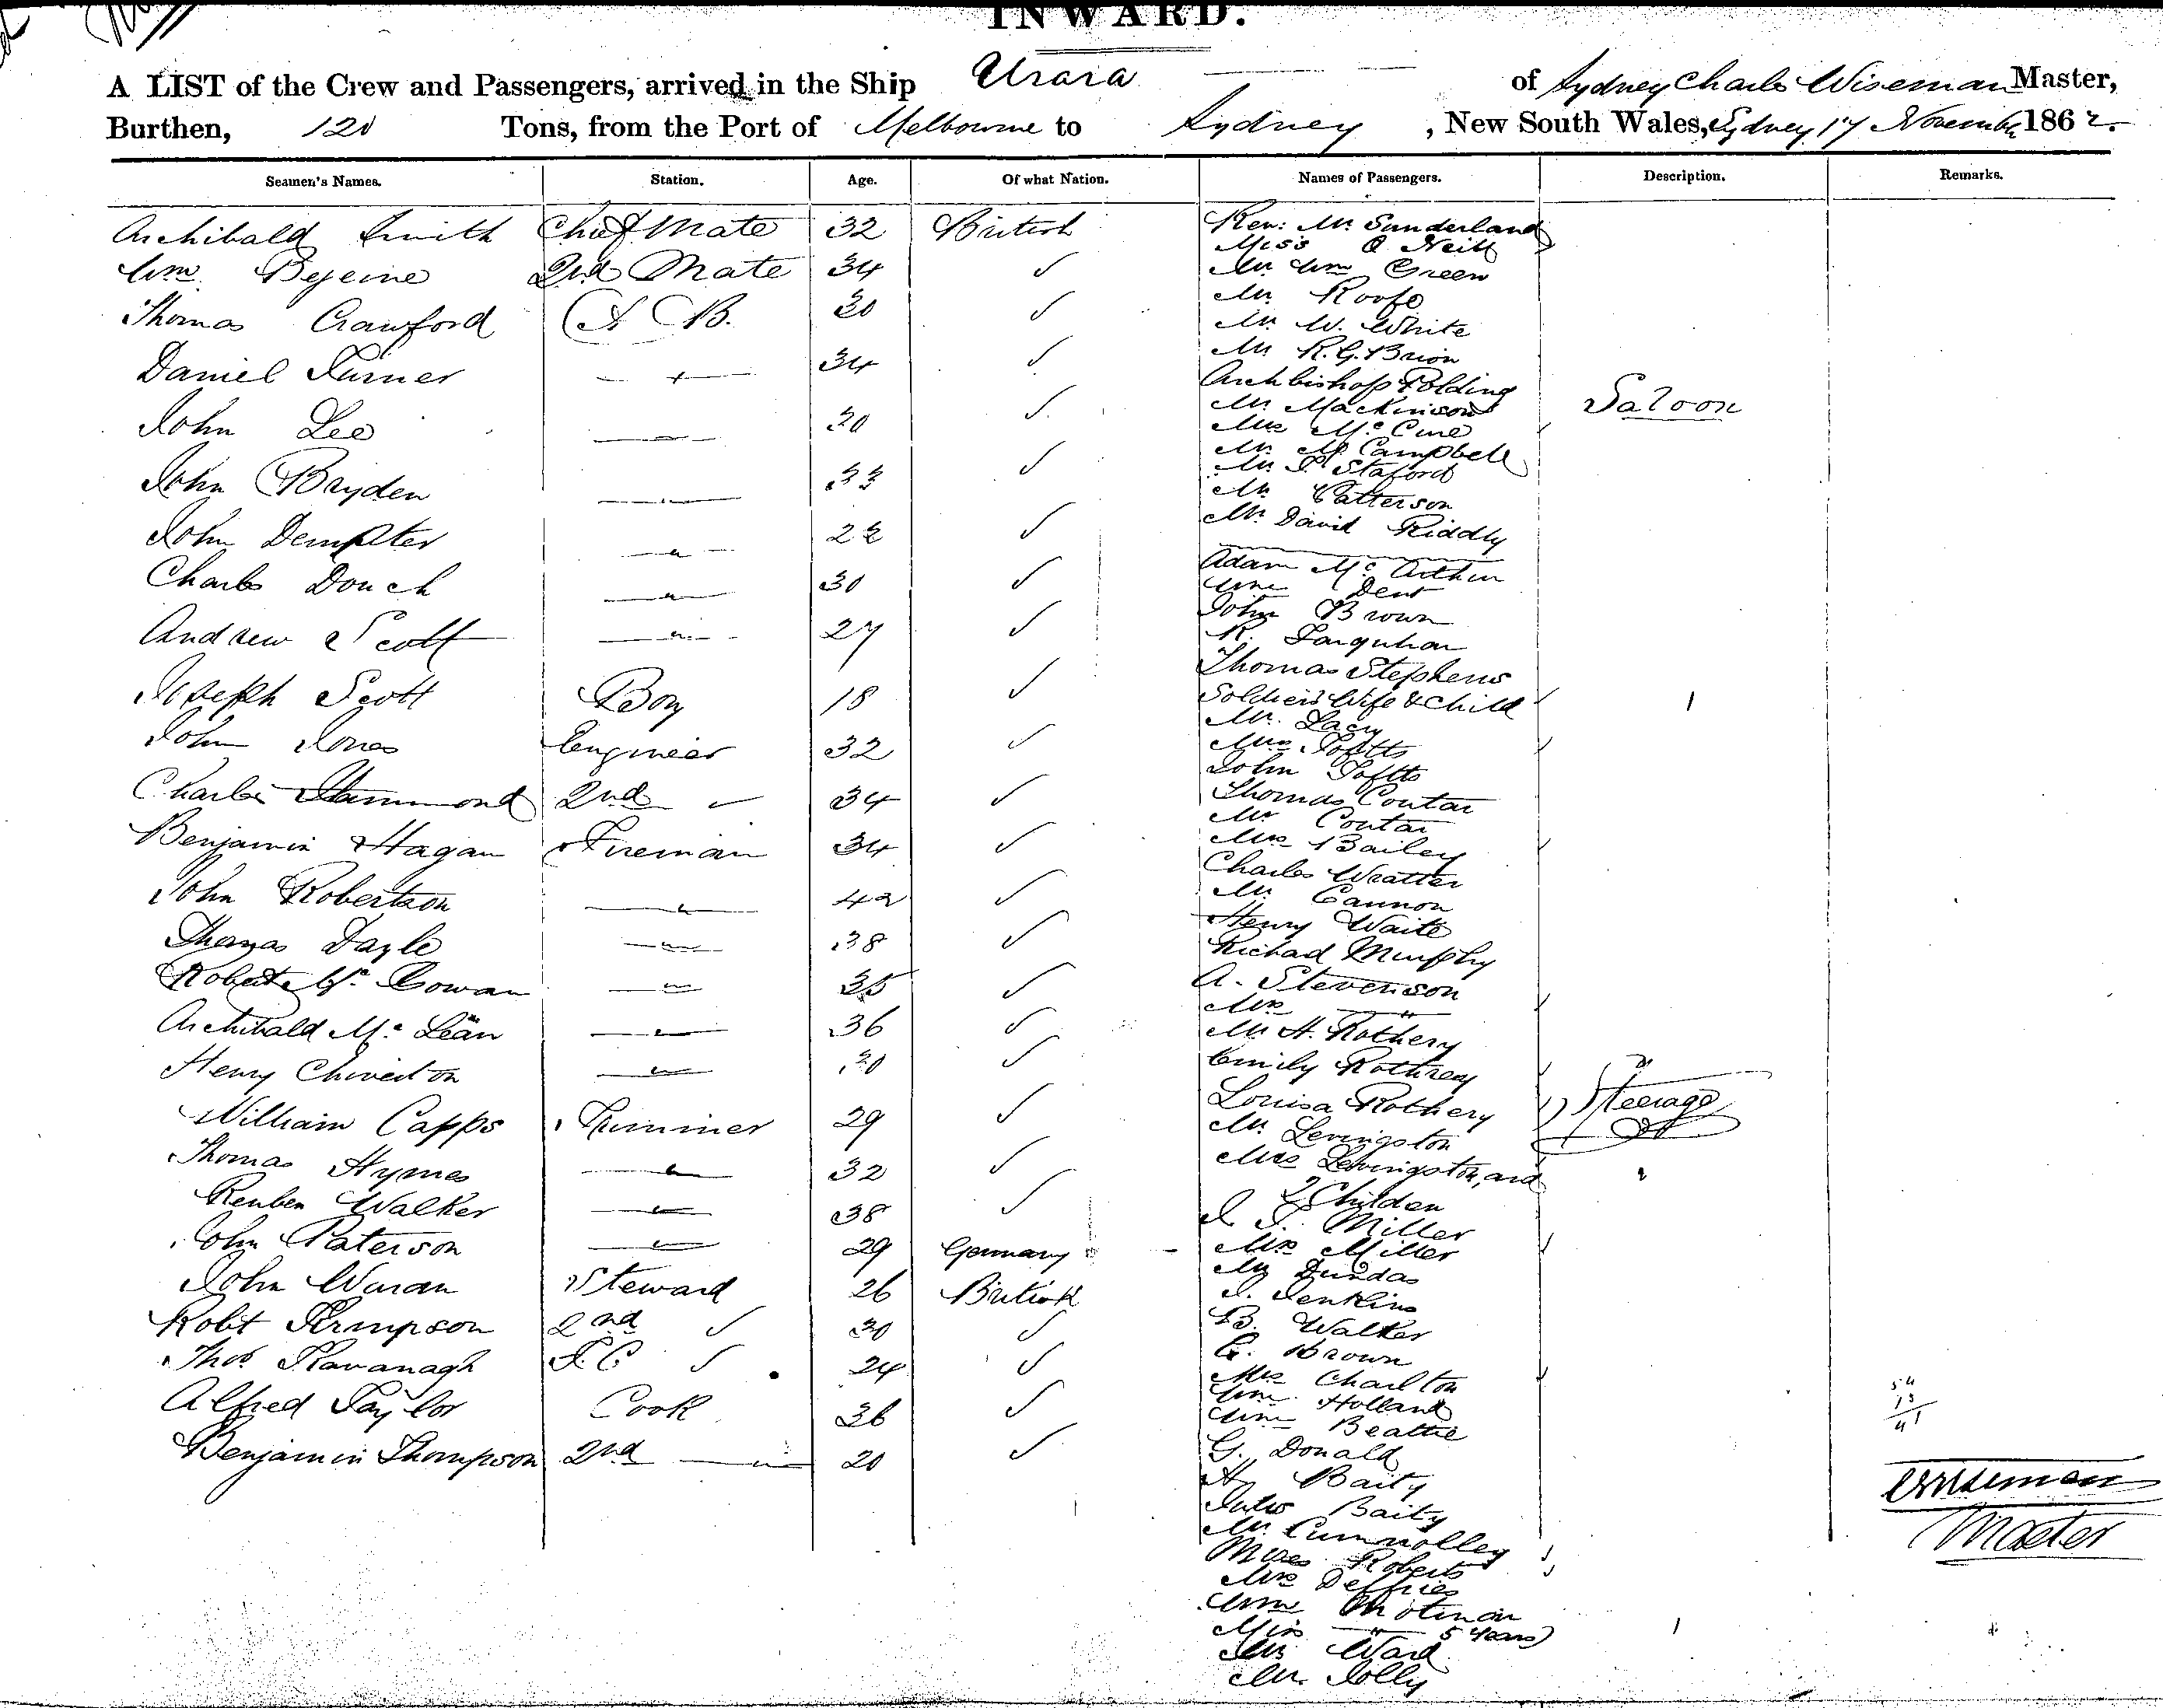 INWARD.
A LIST of the Crew and Passengers, arrived in the Ship Urara of Sydney Charles Wiseman Master,
Burthen, 120 Tons, from the Port of Melbourne to Sydney, New South Wales, Sydney 17 November 1862.
Seamen's Names. Station. Age. Of what Nation. Names of Passengers. Description. Remarks.
Archibald Smith Chief Mate 32 British
Wm. 2nd Mate 34 ✓
Thomas Crawford A B. 30 ✓
Daniel Turner 34 ✓
John Lee 30 ✓
John Bryden 33 ✓
John Dempster 22 ✓
Charles Douch 30 ✓
Andrew Scott 27 ✓
Joseph Scott Boy 18 ✓
John Jones Engineer 32 ✓
Charles Hammond 2nd 34 ✓
Benjamin Hagan Fireman 34 ✓
John Robertson 42 ✓
Thomas 38 ✓
Robert Mc Cowan 35 ✓
Archibald Mc Lean 36 ✓
Henry Chiverton 30 ✓
William Capps Trimmer 29 ✓
Thomas Hymes 32 ✓
Reuben Walker 38 ✓
John Paterson 29 Germany
John Waran Steward 26 British
Robt Simpson 2nd ✓ 30 ✓
Thos Kavanagh ✓ 24 ✓
Alfred Taylor Cook 36 ✓
Benjamin Thompson 2nd 20 ✓
Rev: Mr. Sunderland
Miss O Neill
Mr Wm Green
Mr Roofe
Mr. W. White
Mr R.G. Brion
Archbishop Polding
Mr. Mackinson
Mrs Mc Cure
Mr. Mc Campbell
Mr. P Staford
Mr Patterson
Mr. David Riddly
Saloon
Adam Mc Arthur
Wm Dent
John Brown
R. Farquhar
Thomas Stephens
Soldiers Wife & Child 1
Mr. Lacy
Mrs Tofts
John Tofts
Thomas Coutar
Mr Coutar
Mrs Bailey
Charles Wratter
Mr. Cannon
Henry Waite
Richad Murphy
A. Stevenson
Mrs "
Mr H. Rothery
Emily Rothrey
Louisa Rothery
Mr. Levingston
Mrs Levingston, and
2 Childen
Steerage
J. T. Miller
Mrs Miller
Mr Dundas
J. Jenkins
B. Walker
G. Brown
Mrs Charlton
Wm. Holland
Wm Beattie
G. Donald
H Baity
Baity
Mr. Cunnolley
Roberts
Mrs Deffries
Wm
Miss " 5 Years)
Mr Ward
Mr. Jolly
54
13
41
CWiseman
Master